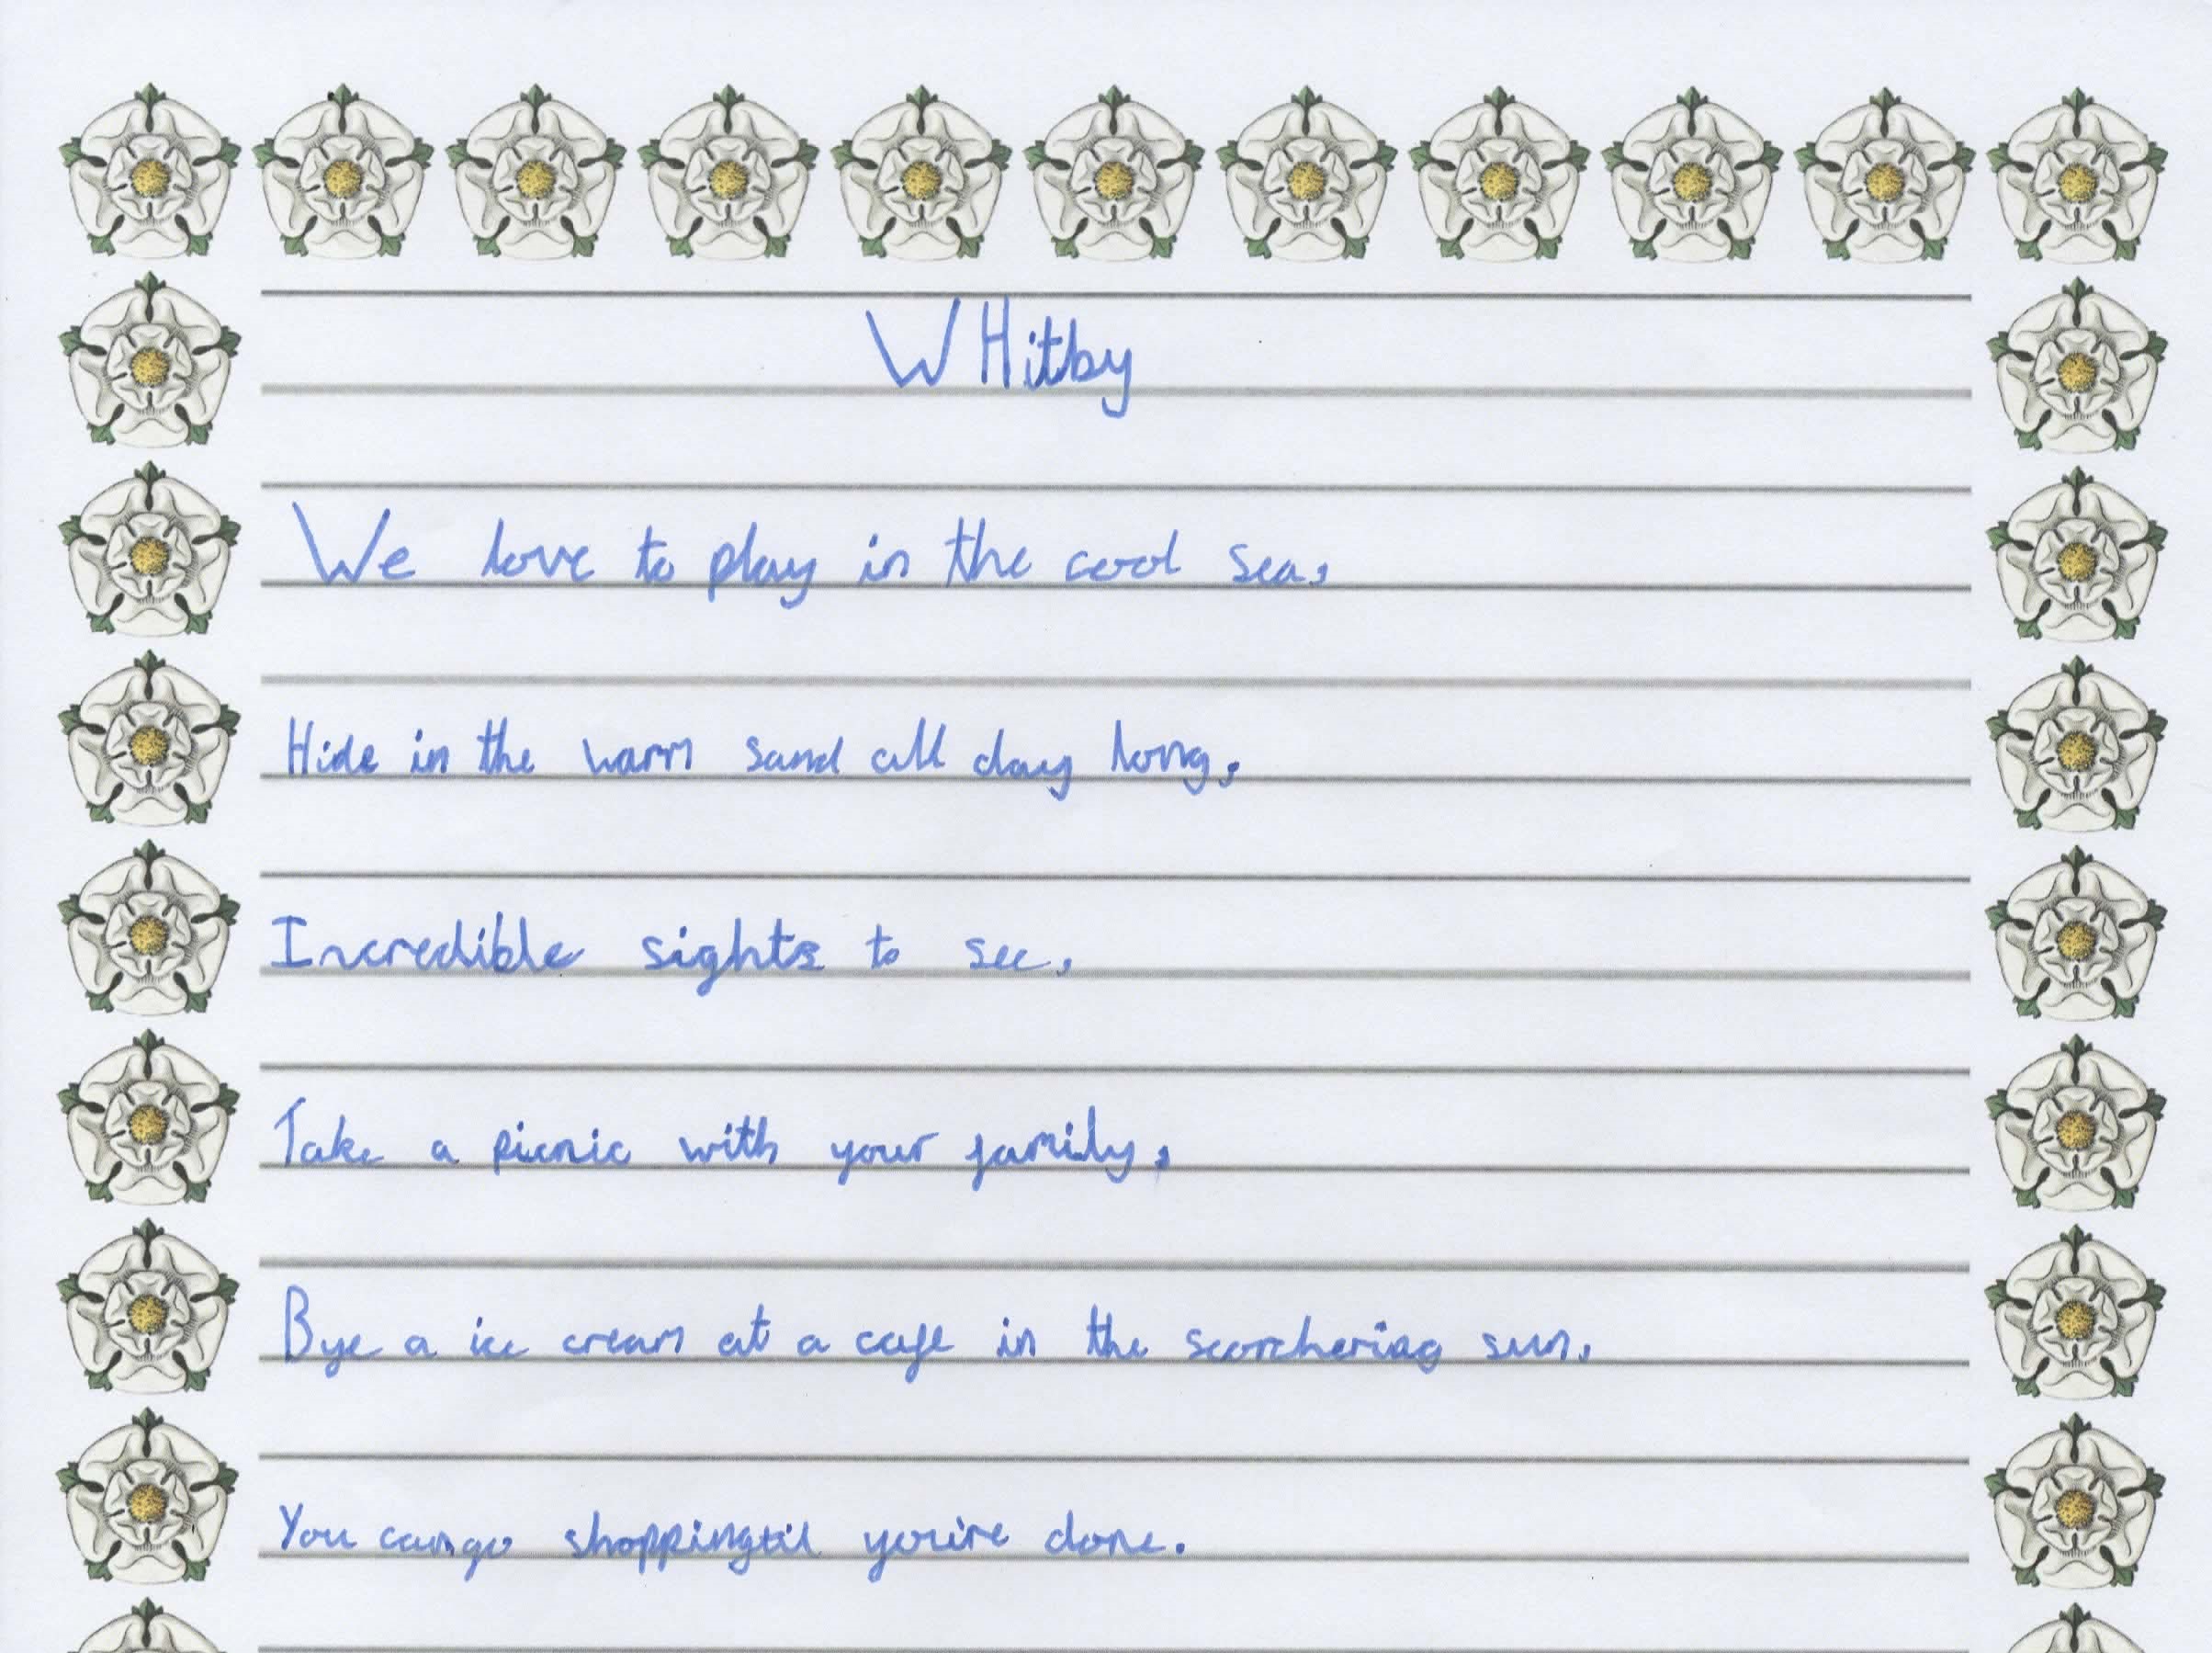 WHitby
We love to play in the cool sea,
Hide in the warm sand all day long,
Incredible sights to see,
Take a picnic with your family,
Bye a ice cream at a cafe in the scorchering sun,
You can go shopping til you're done.